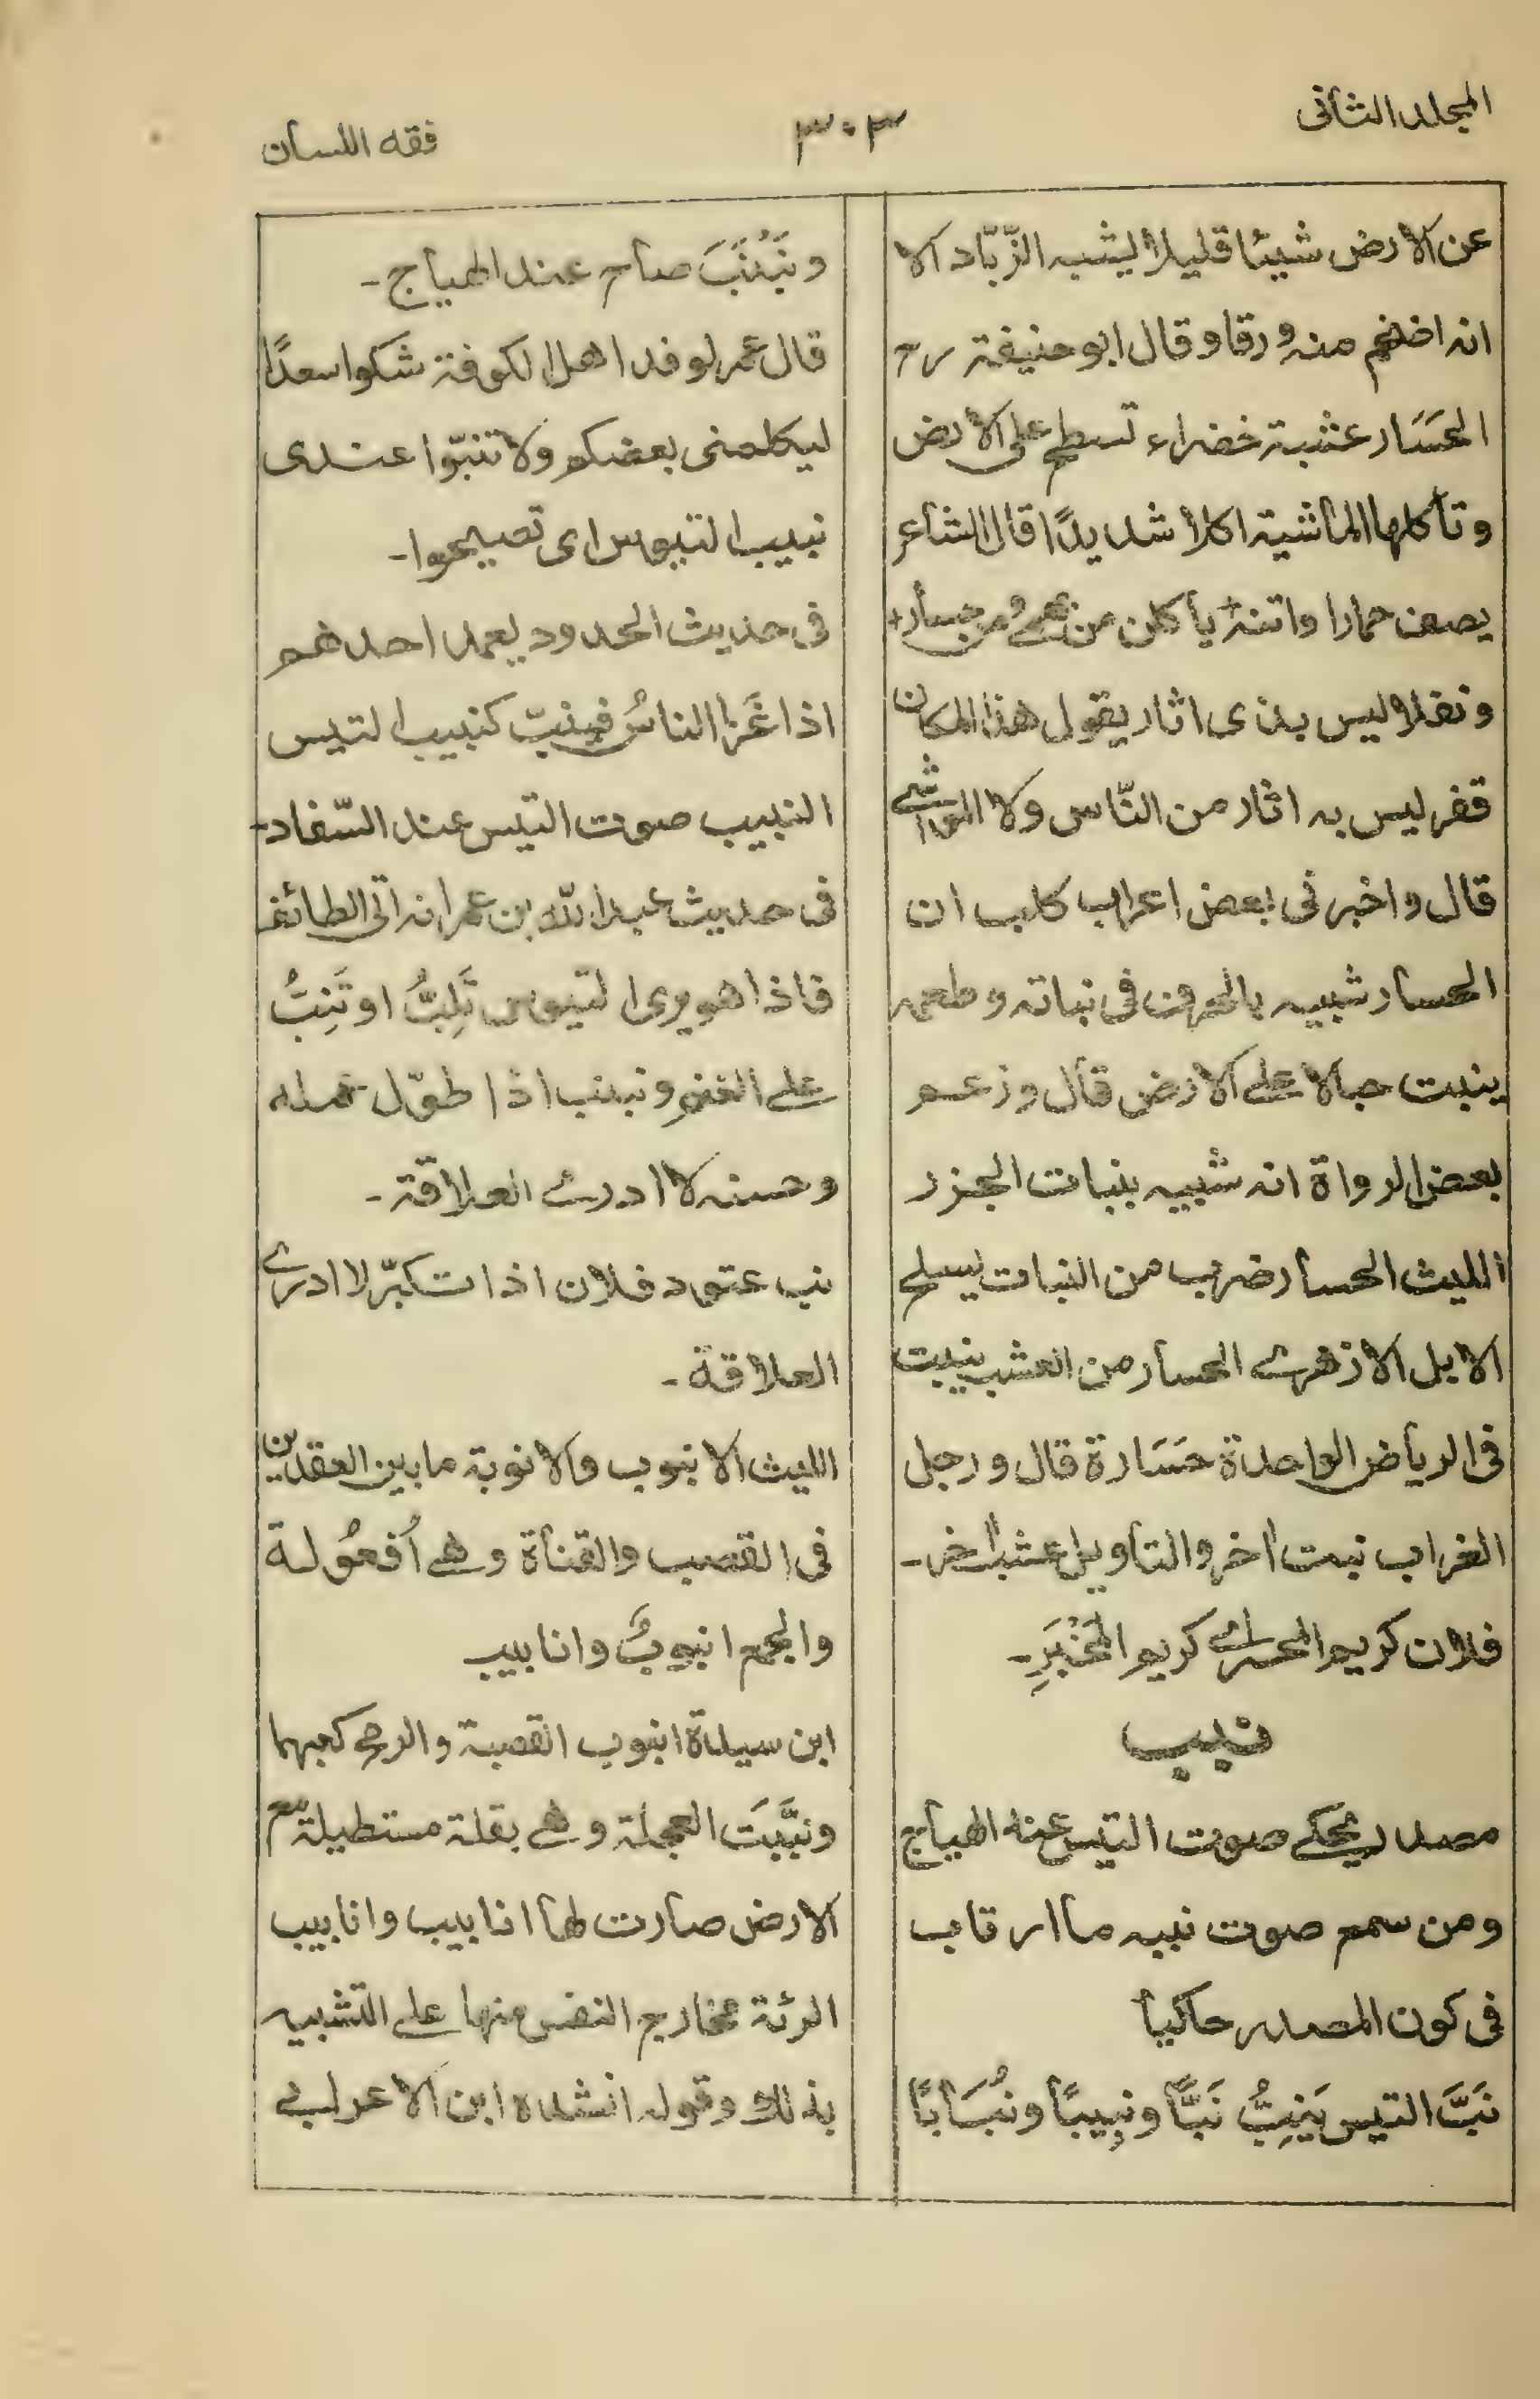 المجلد الثانی
٣٠٣
فقه اللسان
عن الارض شيئا قليلا يشبه الزّبّاد الا
انه اضخم منه ورقا وقال ابو حنيفة رح
الحَسَار عشبة خضراء تسطح على الارض
وتأكلها الماشية اكلا شديدًا قال الشاعر
يصف حمارا واتنه یأکلن من بُهْمٰى ومن حسار +
ونفلا ليس بذی اثار يقول هذا المكان
قفر ليس به اثار من النّاس ولا المواشی
قال واخبر فی بعض اعراب كلب ان
الحسار شبيه بالحرف فی نباته وطعمه
ينبت حبالا على الارض قال وزعم
بعض الرواة انه شبيه بنبات الجزر
الليث الحسار ضرب من النبات يسلح
الابل الازهرى الحسار من العشب ينبت
فی الرياض الواحدة حَسَارة قال ورجل
الغراب نبت اخر والتأويل عشب اخر ـ
فلان كريم المحسر اى كريم المَخْبَرِ ـ
نبب
مصدر يحكى صوت التيس عند الهياج
ومن سمع صوت نبيه ما ارتاب
فی كون المصدر حاكيا
نَبَّ التيس يَنِبُّ نَبًّا ونبيبًا ونُبَابًا
ونَبْنَبَ صاح عند الهياج ـ
قال عمر لوفد اهل الكوفة شكوا سعدًا
ليكلمنی بعضكم ولا تنبّوا عندی
نبيب التيوس ای تصيحوا ـ
فی حديث الحدود يعمد احدهم
اذا غزا الناسُ فينبّ كنبيب التيس
النبيب صوت التيس عند السّفاد ـ
فی حديث عبد اللّه بن عمر انه اتی الطائف
فاذا هو يری التيوس تَلِبُّ او تَنِبُّ
على الغنم ونبنب اذا طوّل عمله
وحسنه لا ادرى العلاقة ـ
نب عتود فلان اذا تكبّر لا ادرى
العلاقة ـ
الليث الانبوب والانوبة ما بين العقدين
فی القصب والقناة وهى اُفعُولة
والجمع انبوبٌ وانابيب
ابن سيدة انبوب القصبة والرمح كعبهما
ونبَّبَت العجلة وهى بقلة مستطيلة مع
الارض صارت لها انابيب وانابيب
الرئة مخارج النفس منها على التشبيه
بذلك وقوله انشده ابن الاعرابى